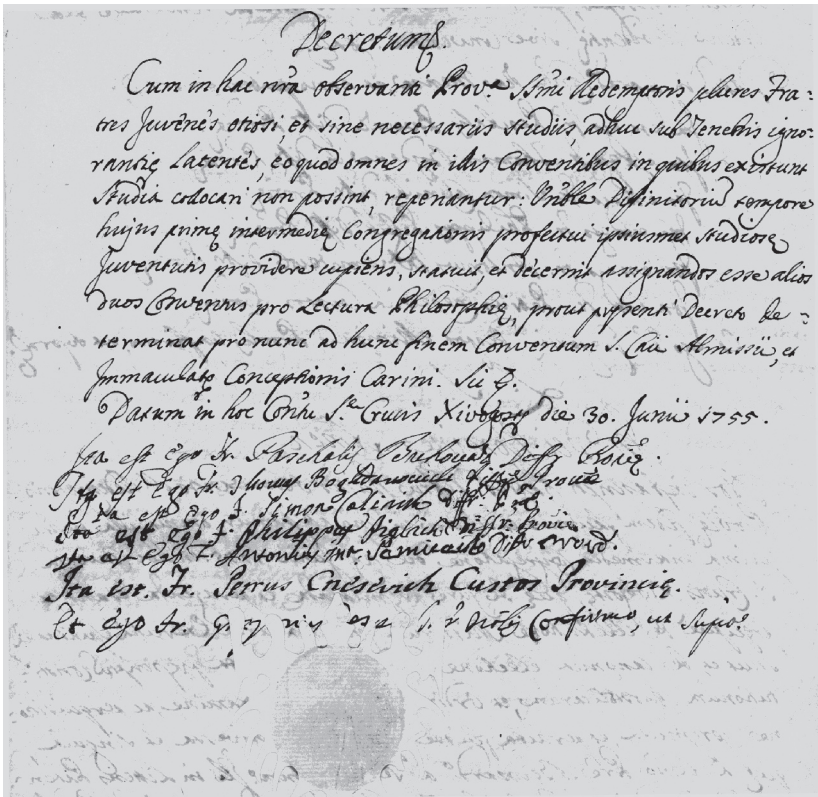 Decretum.
Cum in hac nr̃a observanti Prov.ª Ss̃mi Redemptoris plures Fra-
tres Juvenes otiosi et sine necessariis studiis, adhuc sub Tenebris igno-
rantię Latentes, eo quod omnes in illis Conventibus in quibus existunt
Studia colocari non possint, reperiantur: Vn̄ble Difinitoriũ tempore
hujus primę intermedię Congregationis profectui ipsiusmet studiosę
Juventutis providere cupiens, statuit, et decernit assignandos esse alios
duos Conventus pro Lectura Philosophię, prout pręsenti Decreto de-
terminat pro nunc ad hunc finem Conventum S. Caii Almissii, et
Immaculatę Conceptionis Carini. Sic
Datum in hoc Conṽu S.ᵉ Crucis die 30. Junii 1755.
Ita est Ego Fr. Paschalis Diff.
Ita est Ego Fr. Thomas Bogdanovich Diffr. Provię
Ita est Ego F. Simon Diffr.
Ita est Ego F. Philippus Provię
Ita est Ego F. Antonius Diffr. Provię.
Ita est. Fr. Petrus Custos Provincię.
Et Ego Fr. Confirmo, ut Supra.